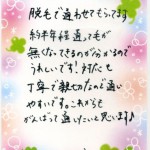 脱毛で通わせてもらってます
約半年経過って毛が
無くなってきるのが分かるので
うれしいです!対応も
丁寧で親切なので通い
やすいです。これからも
がんばって通いたいと思います♪